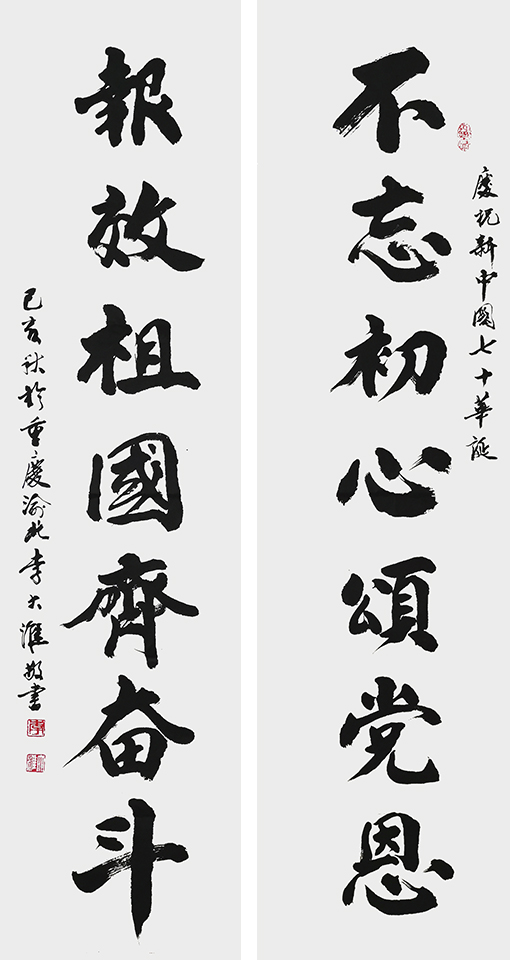 慶祝新中國七十華誕
不忘初心頌党恩
報效祖國齊奋斗
己亥秋於重慶渝北李大淮敬書